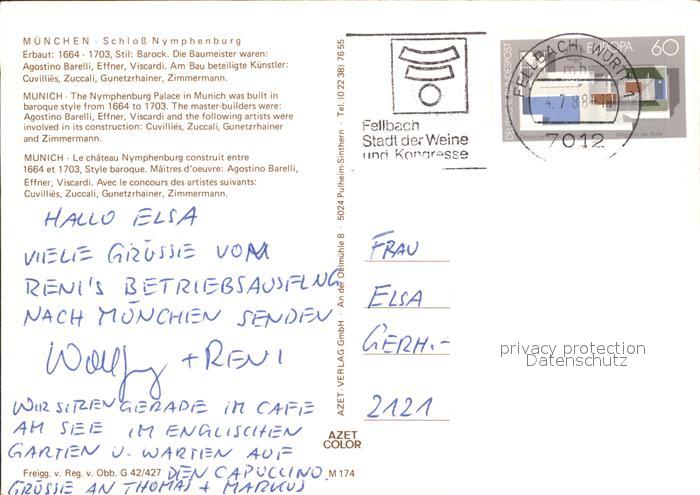 MÜNCHEN - Schloß Nymphenburg
Erbaut: 1664 - 1703, Stil: Barock. Die Baumeister waren:
Agostino Barelli, Effner, Viscardi. Am Bau beteiligte Künstler:
Cuvilliès, Zuccali, Gunetzrhainer, Zimmermann.
MUNICH - The Nymphenburg Palace in Munich was built in
baroque style from 1664 to 1703. The master-builders were:
Agostino Barelli, Effner, Viscardi and the following artists were
involved in its construction: Cuvilliès, Zuccali, Gunetzrhainer
and Zimmermann.
MUNICH - Le château Nymphenburg construit entre
1664 et 1703, Style baroque. Mâitres d'oeuvre: Agostino Barelli,
Effner, Viscardi. Avec le concours des artistes suivants:
Cuvilliès, Zuccali, Gunetzrhainer, Zimmermann.
HALLO ELSA
VIELE GRÜSSE VOM
RENI'S BETRIEBSAUSFLUG
NACH MÜNCHEN SENDEN
Wolfg + RENI
WIR SITZEN GERADE IM CAFE
AM SEE IM ENGLISCHEN
GARTEN U. WARTEN AUF
DEN CAPUCCINO.
GRÜSSE AN THOMAS + MARKUS
Freigg. v. Reg. v. Obb. G 42/427
M 174
AZET
COLOR
AZET-VERLAG GmbH · An der Oelmühle 8 · 5024 Pulheim-Sinthern · Tel. (0 22 38) 76 55
Fellbach
Stadt der Weine
und Kongresse
FELLBACH, WÜRTT 1
mh
4.7.88
7012
EUROPA 60
FRAU
ELSA
GERH.-
2121
privacy protection
Datenschutz